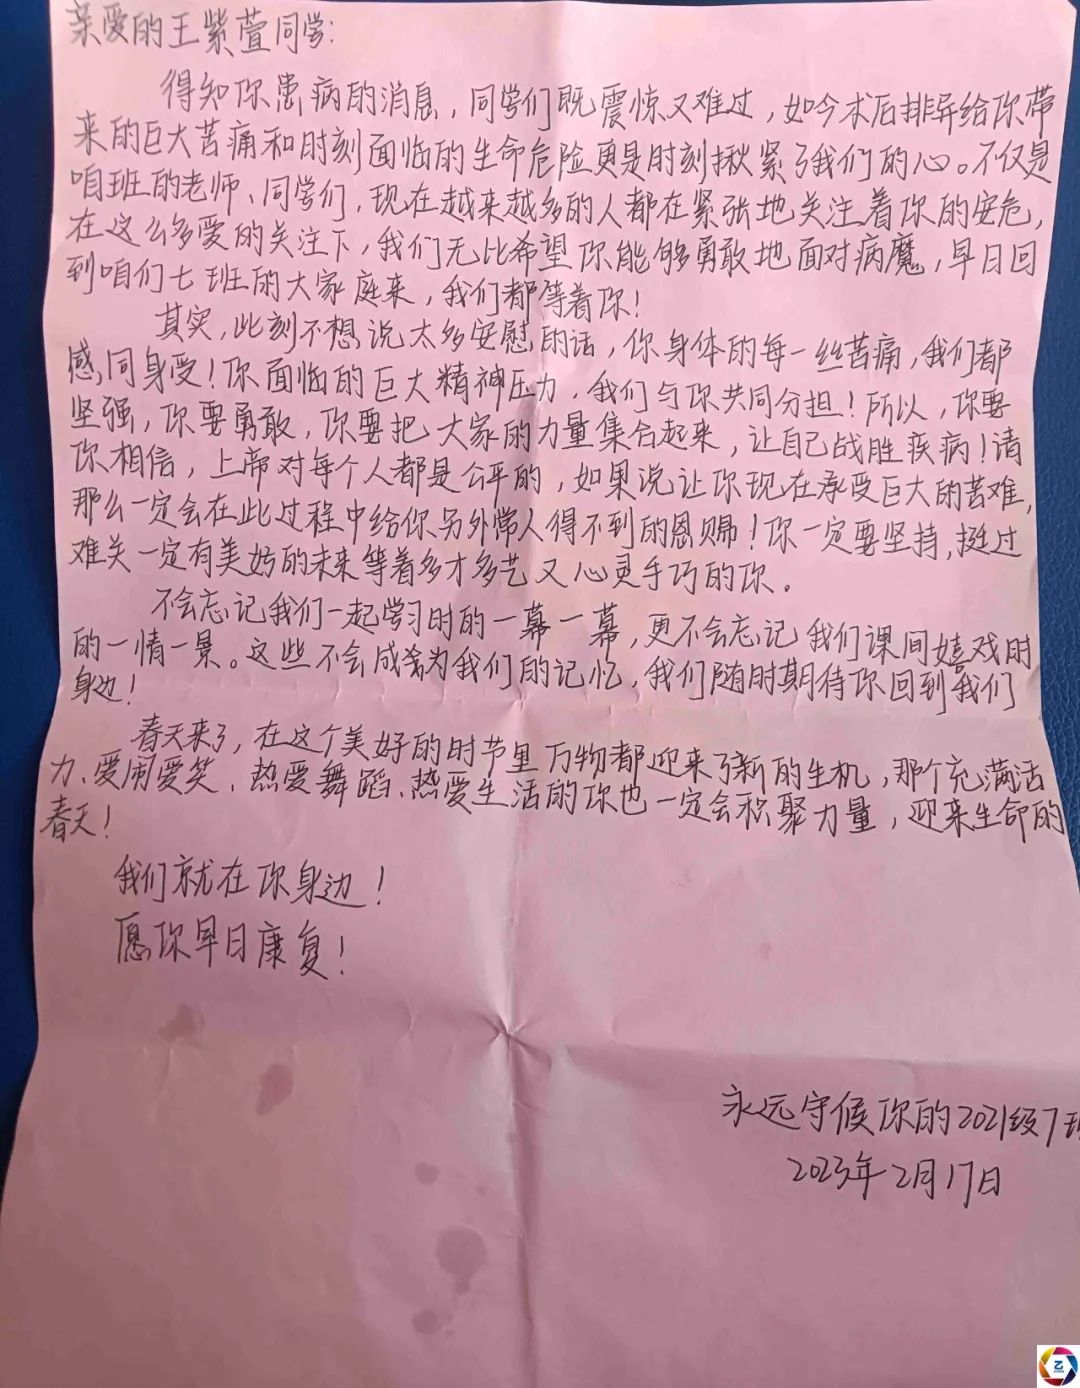 亲爱的王紫萱同学:
得知你患病的消息，同学们既震惊又难过，如今术后排异给你带
来的巨大苦痛和时刻面临的生命危险更是时刻揪紧了我们的心。不仅是
咱班的老师、同学们，现在越来越多的人都在紧张地关注着你的安危，
在这么多爱的关注下，我们无比希望你能够勇敢地面对病魔，早日回
到咱们七班的大家庭来，我们都等着你！
其实，此刻不想说太多安慰的话，你身体的每一丝苦痛，我们都
感同身受！你面临的巨大精神压力，我们与你共同分担！所以，你要
坚强，你要勇敢，你要把大家的力量集合起来，让自己战胜疾病！请
你相信，上帝对每个人都是公平的，如果说让你现在承受巨大的苦难，
那么一定会在此过程中给你另外常人得不到的恩赐！你一定要坚持，挺过
难关一定有美好的未来等着多才多艺又心灵手巧的你。
不会忘记我们一起学习时的一幕一幕，更不会忘记我们课间嬉戏时
的一情一景。这些不会成为我们的记忆，我们随时期待你回到我们
身边！
春天来了，在这个美好的时节里万物都迎来了新的生机，那个充满活
力、爱闹爱笑、热爱舞蹈、热爱生活的你也一定会积聚力量，迎来生命的
春天！
我们就在你身边！
愿你早日康复！
永远守候你的2021级7班
2023年2月17日